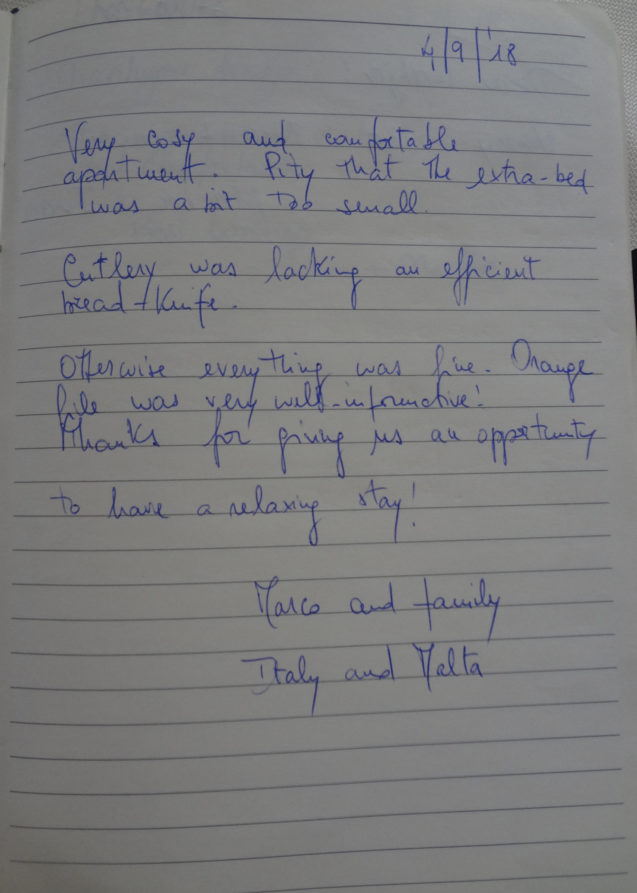 4/9/'18
Very cosy and comfortable
apartment. Pity that the extra-bed
was a bit too small.
Cutlery was lacking an efficient
bread-knife.
Otherwise everything was fine. Orange
file was very well-informative!
Thanks for giving us an opportunity
to have a relaxing stay!
Marco and family
Italy and Malta